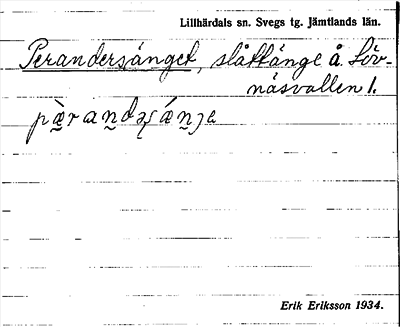 Lillhärdals sn. Svegs tg. Jämtlands län.
Perandersänget, slåttänge å Löv-
näsvallen 1.
Erik Eriksson 1934.